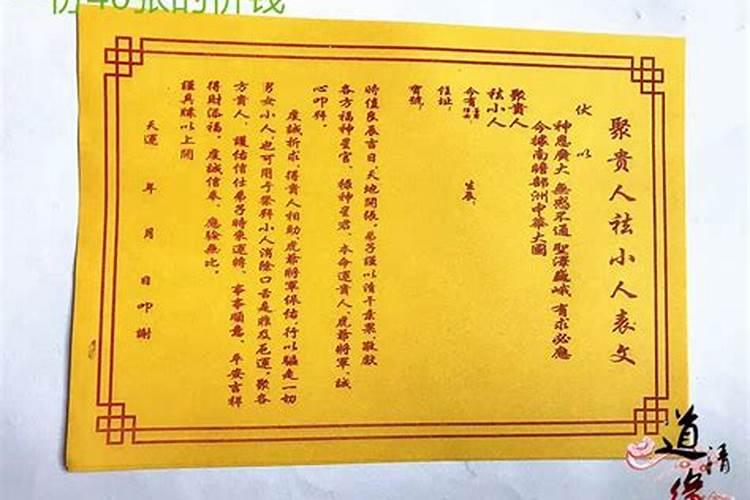 份40张的价钱
聚貴人祛小人表文
伏以
神恩廣大 無感不通 聖澤巍峨 有求必應
今據南瞻部洲中華大國
聚貴人
祛小人
今有
生辰
住址
寶號
時值良辰吉日，天地開張，弟子謹以清千素果敬獻
各方福神星官、祿神星君、本命運貴人、虎爺將軍，誠
心叩拜。
虔誠祈求，得貴人相助虎爺將軍保佑行以驅走一切
男女小人，也可用于祭拜小人消除口舌是非及厄運，聚各
方貴人，護佑信仕弟子時來運轉，事事順意，平安吉祥
得財添福。虔誠信奉，應驗無比。
謹具牒以上聞
天運 年 月 日叩謝
道
清
缘